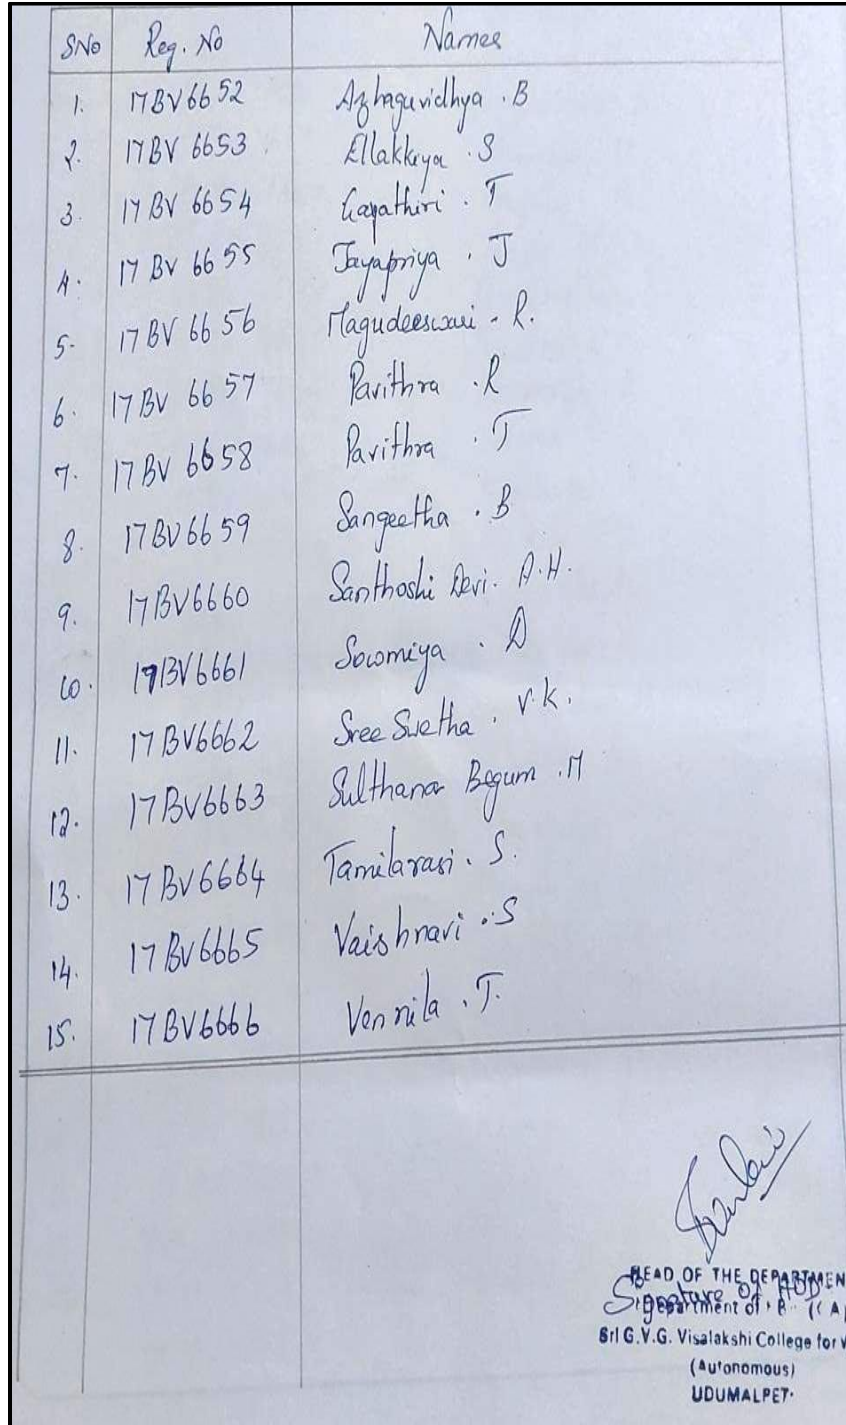 SNo Reg. No Names
1. 17BV6652 Azhaguvidhya . B
2. 17BV 6653 Ellakkiya . S
3. 17 BV 6654 Gayathiri . T
4. 17 BV 6655 Jayapriya . J
5. 17 BV 6656 Magudeeswari - R.
6. 17 BV 6657 Pavithra . R
7. 17 BV 6658 Pavithra . T
8. 17BV6659 Sangeetha . B
9. 17BV6660 Santhoshi Devi. A.H.
10. 17BV6661 Sowmiya . D
11. 17BV6662 Sree Swetha . V.K.
12. 17BV6663 Sulthana Begum .M
13. 17BV6664 Tamilarasi . S.
14. 17BV6665 Vaishnavi . S
15. 17BV6666 Vennila . T.
HEAD OF THE DEPARTMEN
Signature of HOD
Department of B
Sri G.V.G. Visalakshi College for
(Autonomous)
UDUMALPET.